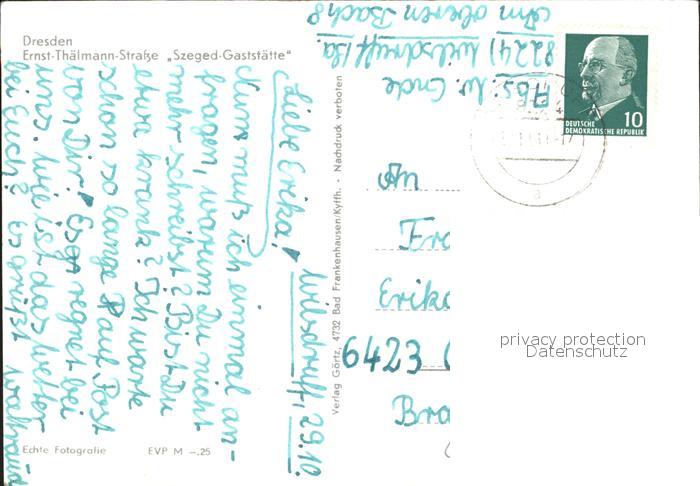 Dresden
Ernst-Thälmann-Straße „Szeged-Gaststätte"
Wilsdruff, 29.10.
Liebe Erika!
Nun muß ich einmal an-
fragen, warum Du nicht
mehr schreibst? Bist Du
etwa krank? Ich warte
schon so lange auf Post
von Dir! Es regnet bei
uns. Wie ist das Wetter
bei Euch? Es grüßt Waltraud
Echte Fotografie EVP M –.25
Verlag Görtz, 4732 Bad Frankenhausen/Kyffh. · Nachdruck verboten
Abs. W. Ende
8224) Wilsdruff/Sa.
Am oberen Bach 8
10
DEUTSCHE
DEMOKRATISCHE REPUBLIK
a
An
Fra
Erika
6423
Bra
privacy protection
Datenschutz